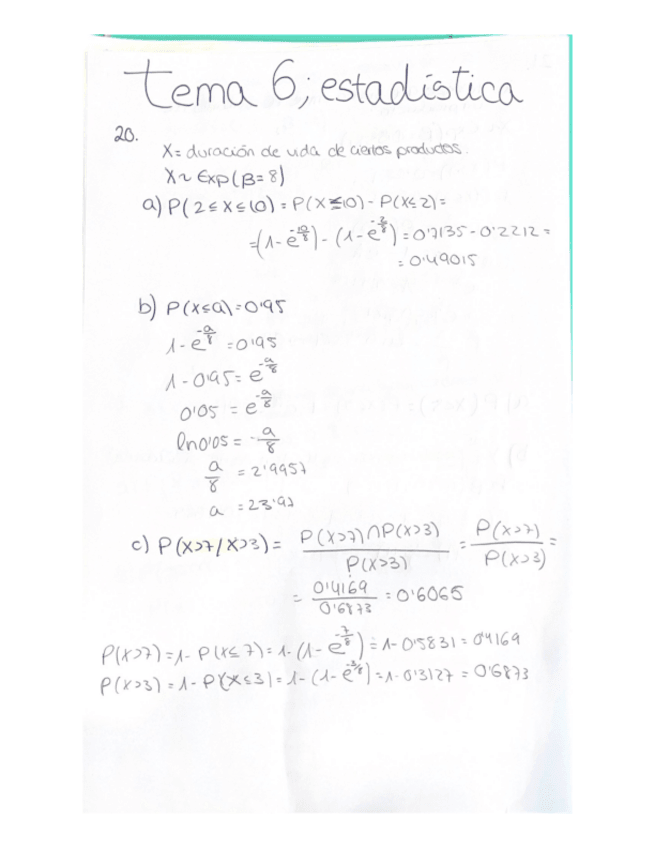 tema 6; estadística
20.
X = duración de vida de ciertos productos.
X ~ Exp(β=8)
a) P(2≤X≤10) = P(X≤10) - P(X≤2) =
= (1-e^(-10/8)) - (1-e^(-2/8)) = 0'7135 - 0'2212 =
= 0'49015
b) P(X≤a) = 0'95
1-e^(-a/8) = 0'95
1-0'95 = e^(-a/8)
0'05 = e^(-a/8)
ln0'05 = -a/8
a/8 = 2'9957
a = 23'97
c) P(X>7/X>3) = P(X>7)∩P(X>3) / P(X>3) = P(X>7) / P(X>3) =
= 0'4169 / 0'6873 = 0'6065
P(X>7) = 1- P(X≤7) = 1-(1-e^(-7/8)) = 1-0'5831 = 0'4169
P(X>3) = 1- P(X≤3) = 1-(1-e^(-3/8)) = 1-0'3127 = 0'6873